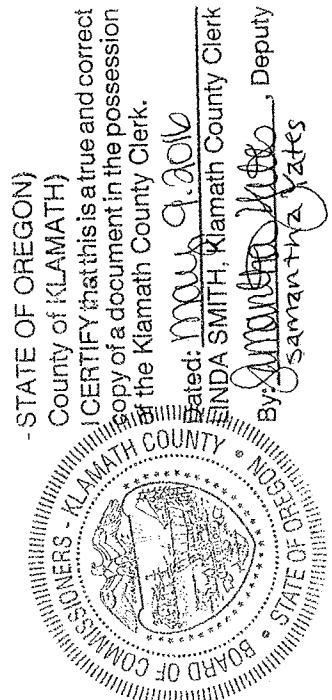 -STATE OF OREGON)
County of KLAMATH)
I CERTIFY that this is a true and correct
copy of a document in the possession
of the Klamath County Clerk.
Dated: May 9. 2016
LINDA SMITH, Klamath County Clerk
By: Samantha Yates, Deputy
Samantha Yates
BOARD OF COMMISSIONERS - KLAMATH COUNTY
STATE OF OREGON